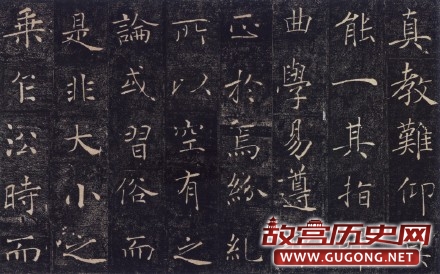 真教難仰
能一其指
曲學易遵
正於焉紛糺
所以空有之
論或習俗而
是非大小之
乘乍沿時而
故宫历史网
WWW.GUGONG.NET